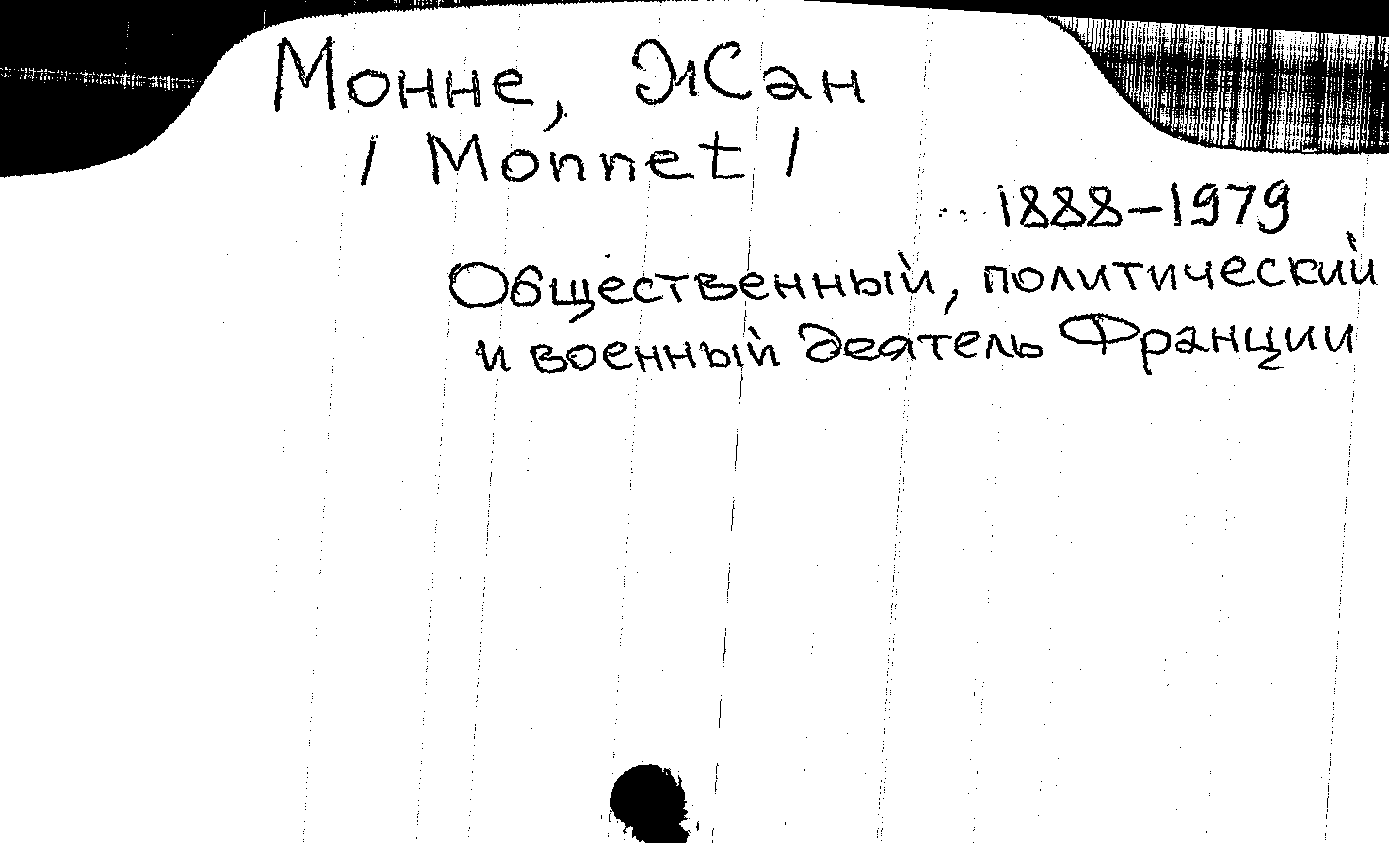 Монне, Жан
/ Monnet /
1888–1979
Общественный, политический
и военный деятель Франции